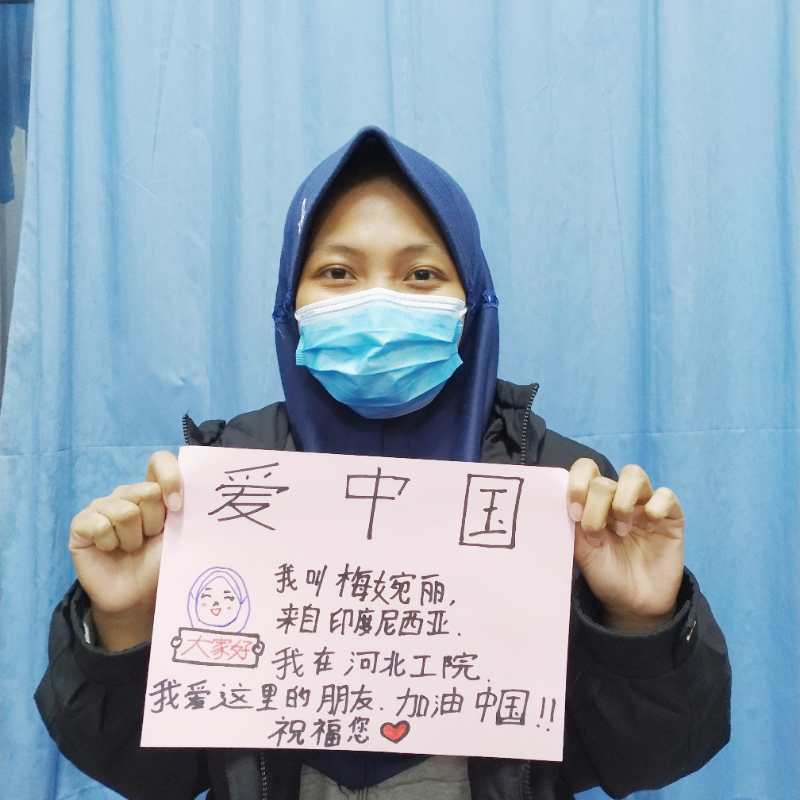 爱中国
我叫梅婉丽,
来自印度尼西亚.
大家好
我在河北工院.
我爱这里的朋友.加油中国!!
祝福您